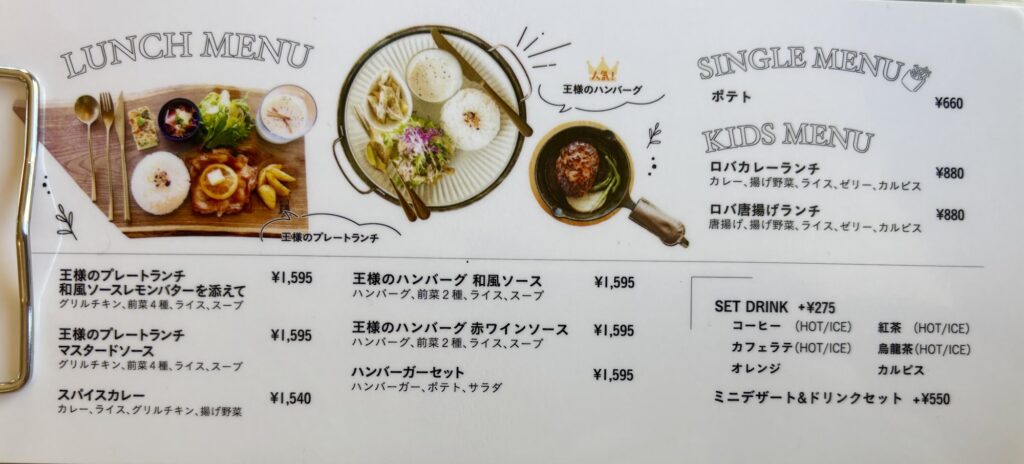 LUNCH MENU
人気!
王様のハンバーグ
王様のプレートランチ
王様のプレートランチ
和風ソースレモンバターを添えて ¥1,595
グリルチキン、前菜4種、ライス、スープ
王様のプレートランチ
マスタードソース ¥1,595
グリルチキン、前菜4種、ライス、スープ
スパイスカレー ¥1,540
カレー、ライス、グリルチキン、揚げ野菜
王様のハンバーグ 和風ソース ¥1,595
ハンバーグ、前菜2種、ライス、スープ
王様のハンバーグ 赤ワインソース ¥1,595
ハンバーグ、前菜2種、ライス、スープ
ハンバーガーセット ¥1,595
ハンバーガー、ポテト、サラダ
SINGLE MENU
ポテト ¥660
KIDS MENU
ロバカレーランチ ¥880
カレー、揚げ野菜、ライス、ゼリー、カルピス
ロバ唐揚げランチ ¥880
唐揚げ、揚げ野菜、ライス、ゼリー、カルピス
SET DRINK +¥275
コーヒー (HOT/ICE) 紅茶 (HOT/ICE)
カフェラテ(HOT/ICE) 烏龍茶(HOT/ICE)
オレンジ カルピス
ミニデザート&ドリンクセット +¥550